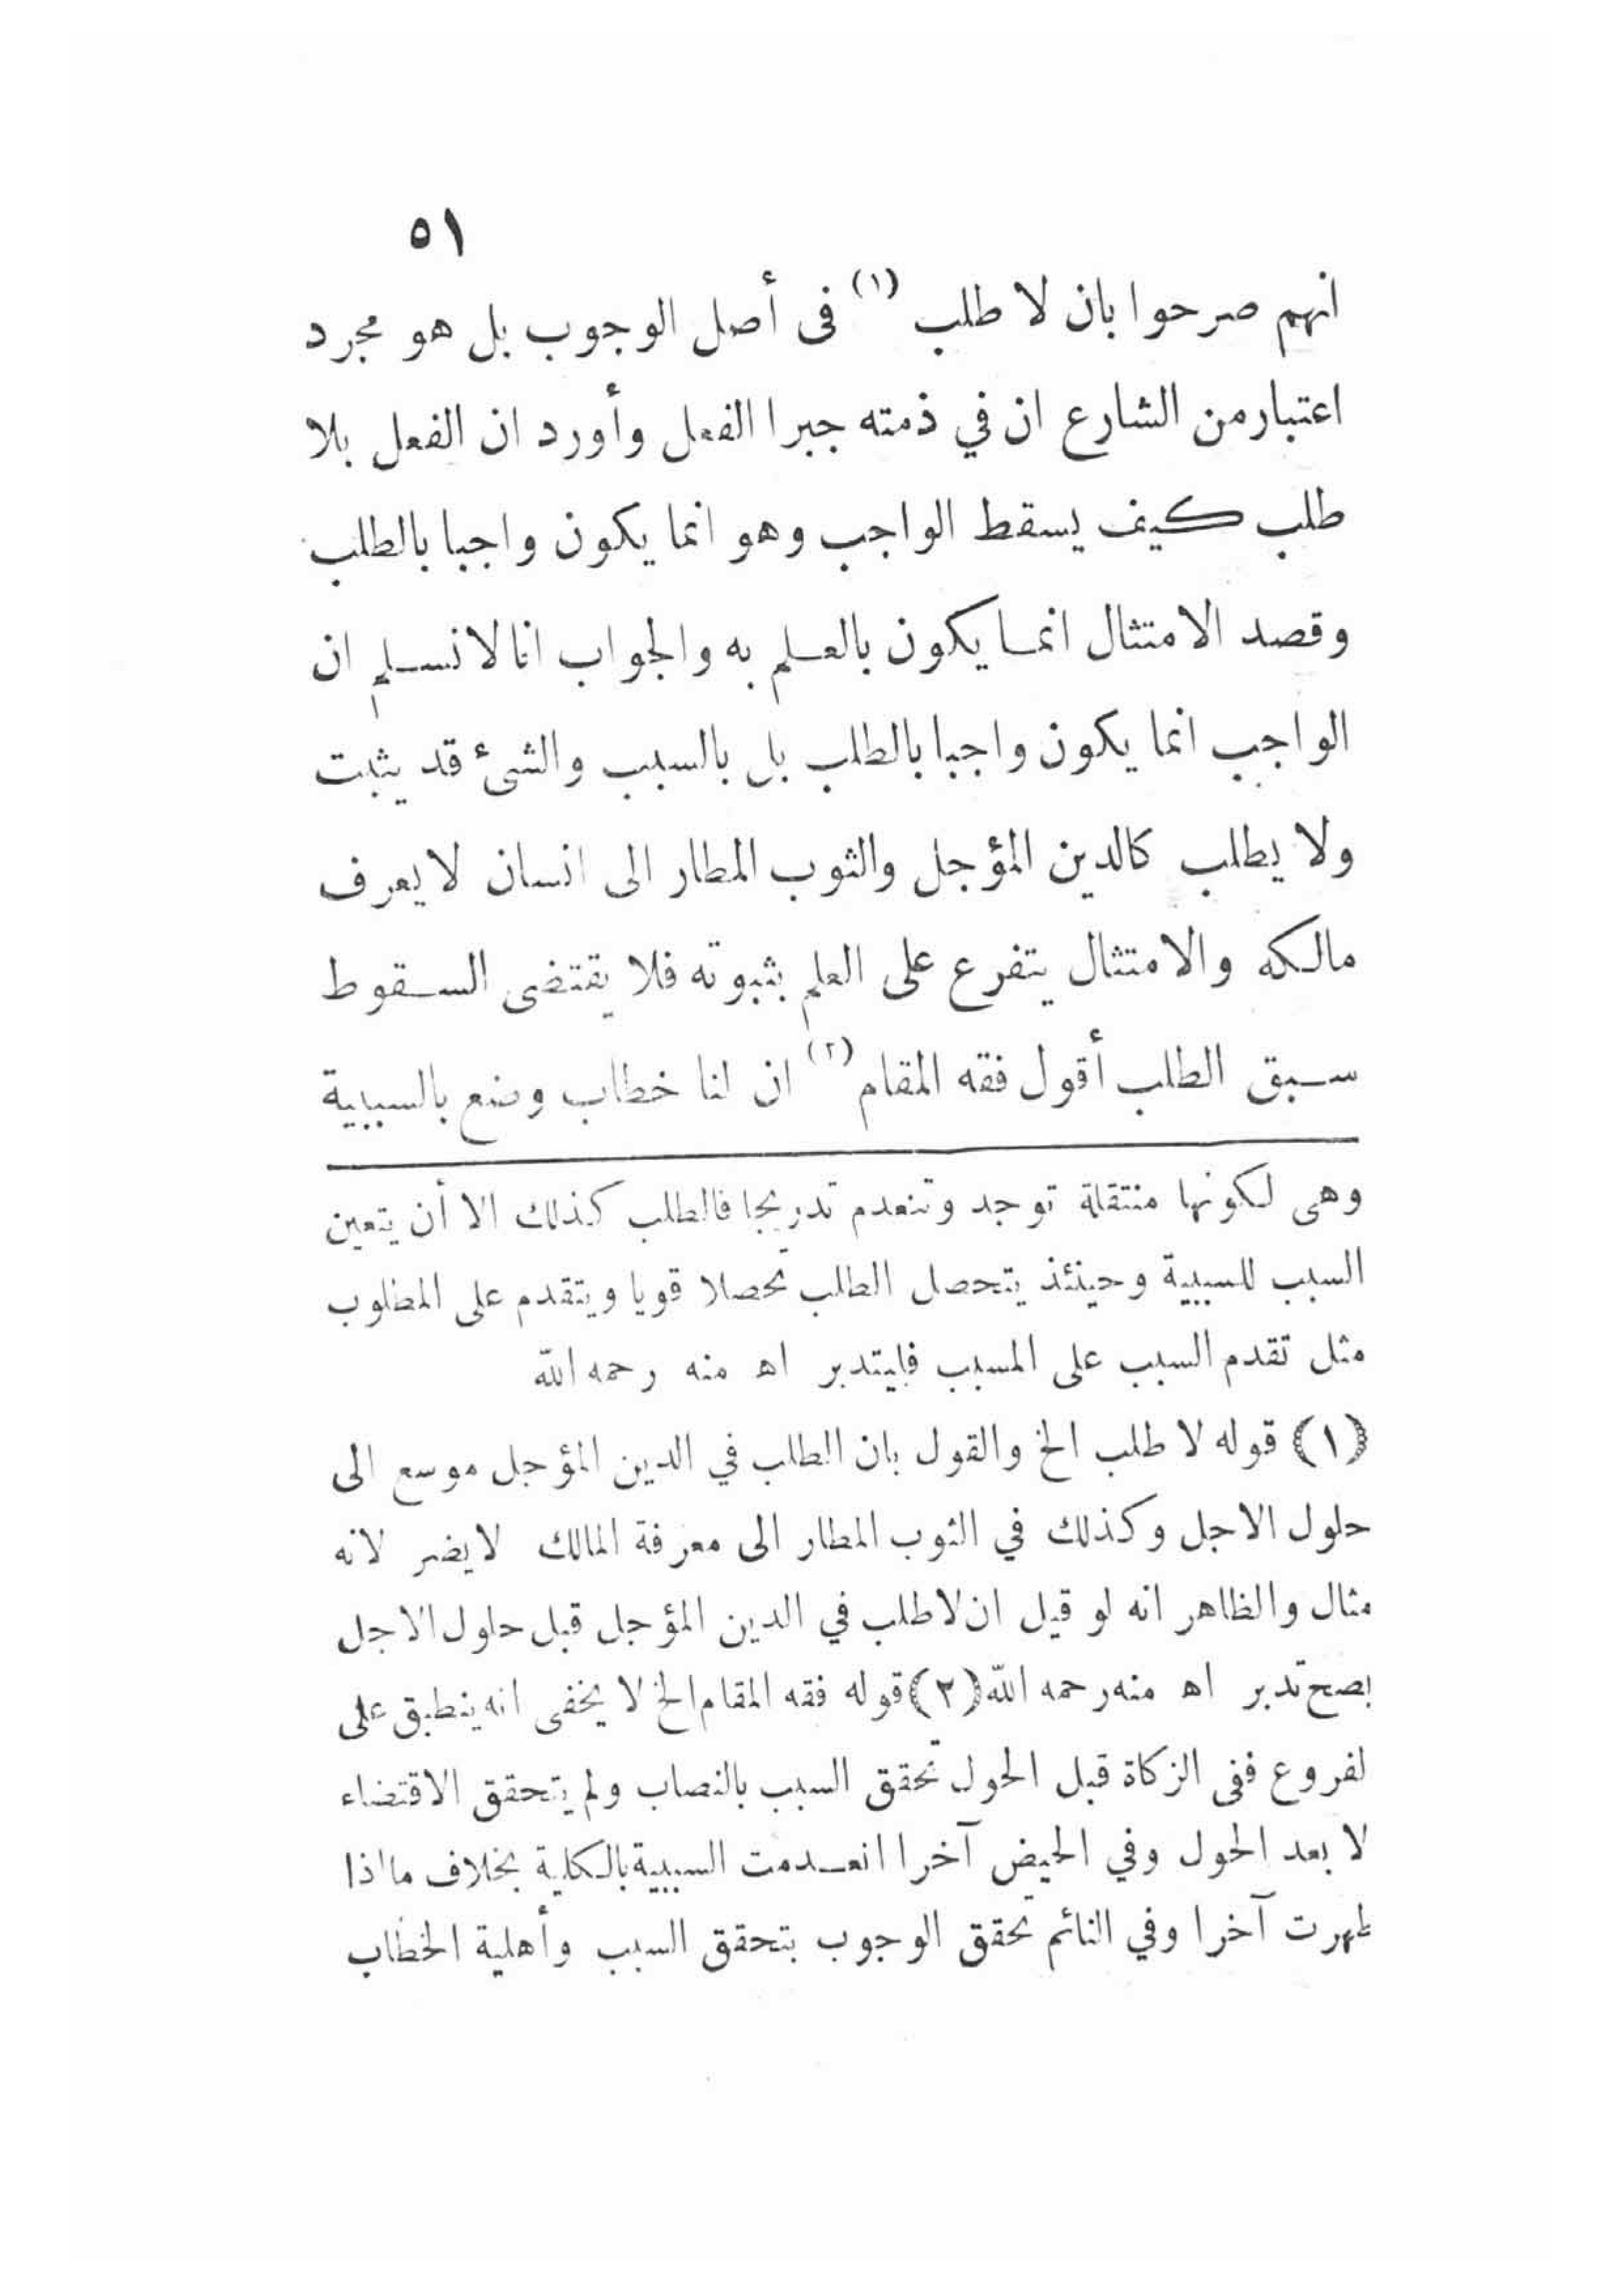 ٥١
انهم صرحوا بان لا طلب (١) فى أصل الوجوب بل هو مجرد
اعتبار من الشارع ان في ذمته جبرا الفعل وأورد ان الفعل بلا
طلب كيف يسقط الواجب وهو انما يكون واجبا بالطلب
وقصد الامتثال انما يكون بالعلم به والجواب انا لا نسلم ان
الواجب انما يكون واجبا بالطلب بل بالسبب والشىء قد يثبت
ولا يطلب كالدين المؤجل والثوب المطار الى انسان لا يعرف
مالكه والامتثال يتفرع على العلم بثبوته فلا يقتضى السقوط
سبق الطلب أقول فقه المقام (٢) ان لنا خطاب وضع بالسببية
وهى لكونها منتقلة توجد وتنعدم تدريجا فالطلب كذلك الا أن يتعين
السبب للسببية وحينئذ يتحصل الطلب تحصلا قويا ويتقدم على المطلوب
مثل تقدم السبب على المسبب فليتدبر اه منه رحمه الله
(١) قوله لا طلب الخ والقول بان الطلب في الدين المؤجل موسع الى
حلول الاجل وكذلك في الثوب المطار الى معرفة المالك لا يضر لانه
مثال والظاهر انه لو قيل ان لا طلب في الدين المؤجل قبل حلول الاجل
يصح تدبر اه منه رحمه الله (٢) قوله فقه المقام الخ لا يخفى انه ينطبق على
لفروع ففى الزكاة قبل الحول تحقق السبب بالنصاب ولم يتحقق الاقتضاء
لا بعد الحول وفي الحيض آخرا انعدمت السببية بالكلية بخلاف ما اذا
طهرت آخرا وفي النائم تحقق الوجوب بتحقق السبب وأهلية الخطاب